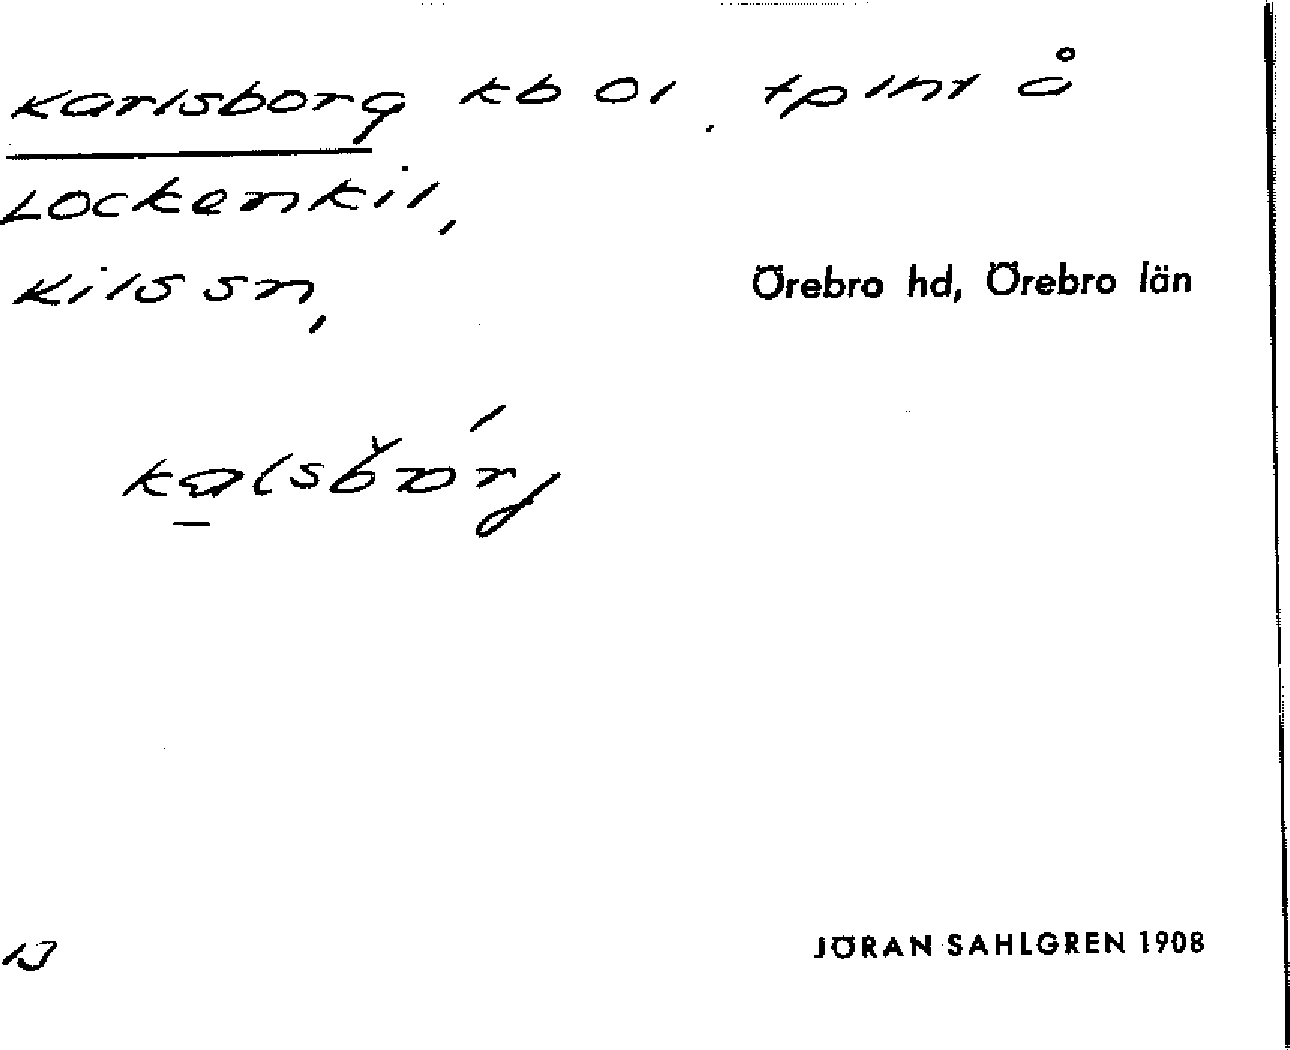 Karlsborg kb 01. tplht å
Lockenkil,
Kils sn, Örebro hd, Örebro län
JÖRAN SAHLGREN 1908